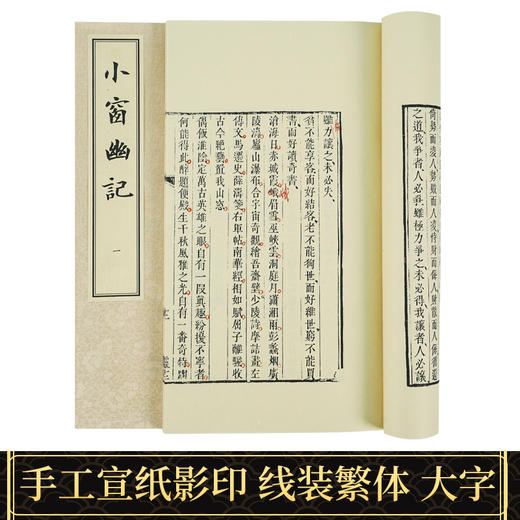 小窗幽記
一
尚勢而凌人勢敗而人凌恃財而侮人財散而人侮循還
之道我爭者人必爭雖極力爭之未必得我讓者人必讓
雖力讓之未必失
貧不能享客而好結客老不能徇世而好維世窮不能買
書而好讀奇書
滄海日赤城霞峨眉雪巫峽雲洞庭月瀟湘雨彭蠡烟廣
陵濤廬山瀑布合宇宙奇觀繪吾齋壁少陵詩摩詰畫左
傳文馬遷史薛濤箋右軍帖南華經相如賦屈子離騷收
古今絕藝置我山窓
偶飯淮陰定萬古英雄之眼自有一段真趣紛擾不寧者
何能得此醉題便殿生千秋風雅之光自有一番奇特
手工宣纸影印 线装繁体 大字